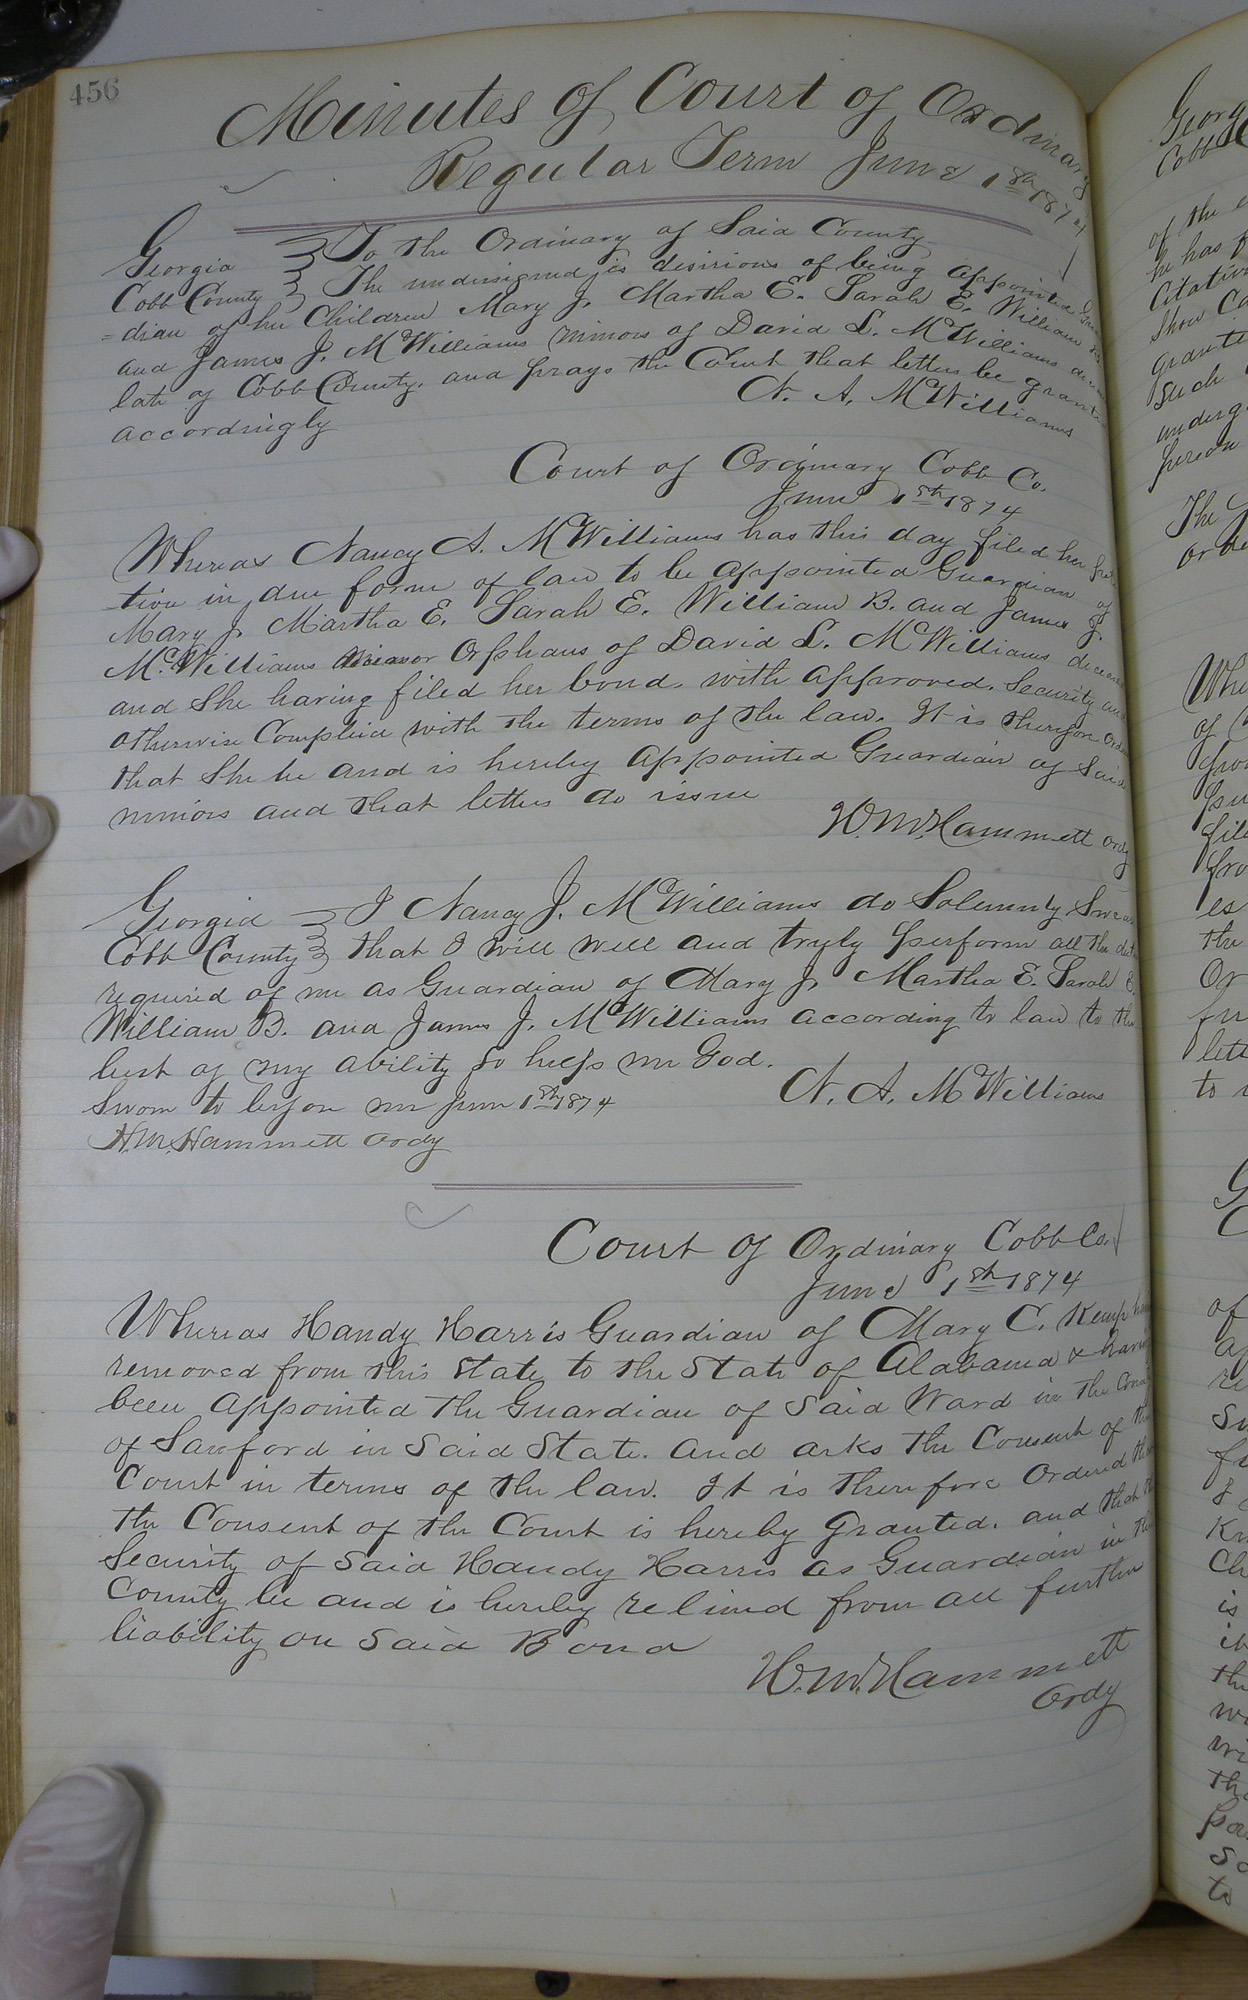 456
Minutes of Court of Ordinary
Regular Term June 1st 1874
Georgia } To the Ordinary of Said County
Cobb County } The undersigned is desirious of being appointed Guar
=dian of her Children Mary J. Martha E. Sarah E. William B.
and James J. McWilliams minors of David L. McWilliams decea
late of Cobb County. and prays the Court that letters be grante
accordingly
N. A. McWilliams
Court of Ordinary Cobb Co.
June 1st 1874
Whereas Nancy A. McWilliams has this day filed her peti
-tion in due form of law to be appointed Guardian of
Mary J. Martha E. Sarah E. William B. and James J.
McWilliams minor Orphans of David L. McWilliams deceased
and She having filed her bond. with approved. Security and
otherwise Complied with the terms of the law. It is therefore Ord
that She be and is hereby appointed Guardian of Said
minors and that letters do issue
H. M. Hammett Ordy
Georgia } I Nancy J. McWilliams do Solemnly Swear
Cobb County } that I will well and truly perform all the
required of me as Guardian of Mary J. Martha E. Sarah E.
William B. and James J. McWilliams according to law to the
best of my ability so helps me God.
Sworn to before me June 1st 1874 N. A. McWilliams
H. M. Hammett Ordy
Court of Ordinary Cobb Co.
June 1st 1874
Whereas Handy Harris Guardian of Mary C. Kemp
removed from this State to the State of Alabama & havin
been appointed the Guardian of Said Ward in the
of Sanford in Said State. and asks the Consent of the
Court in terms of the law. It is therefore Ordered that
the Consent of the Court is hereby Granted. and that the
Security of Said Handy Harris as Guardian in this
County be and is hereby relieved from all further
liability on Said Bond
H. M. Hammett
Ordy
Georg
Cobb C
of the
he has f
Citation
Show Ca
grante
such
underg
person
The
orde
Whe
of
fil
fro
es
the
Or
fu
lett
to
of
is
it
the
wi
tha
So
to